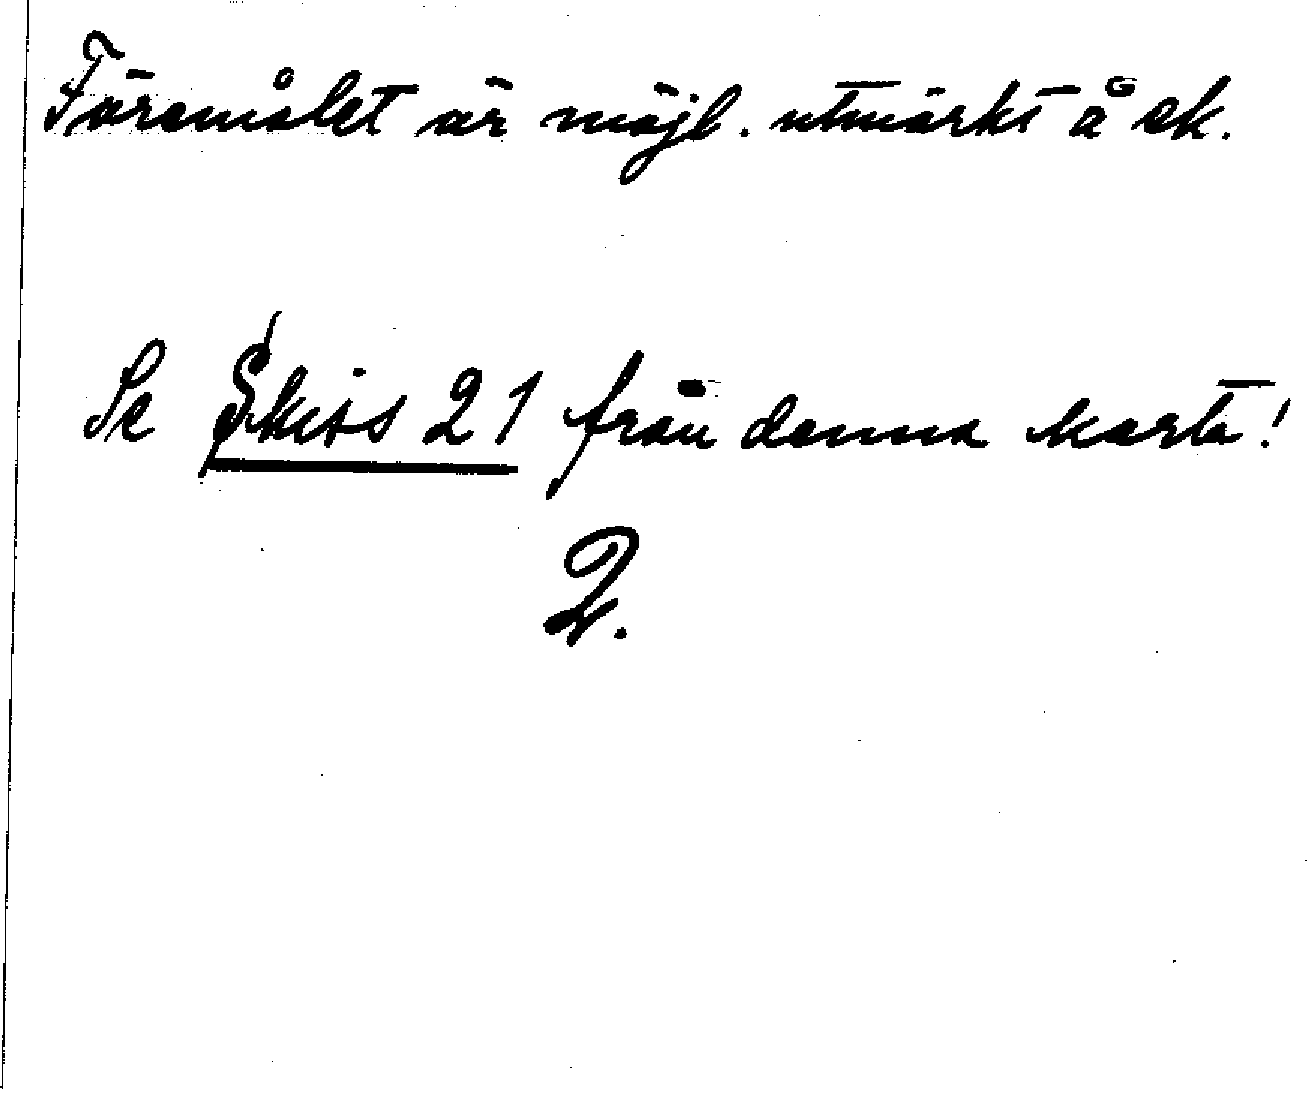 Föremålet är möjl. utmärkt å ek.
Se Skiss 21 från denna karta!
2.